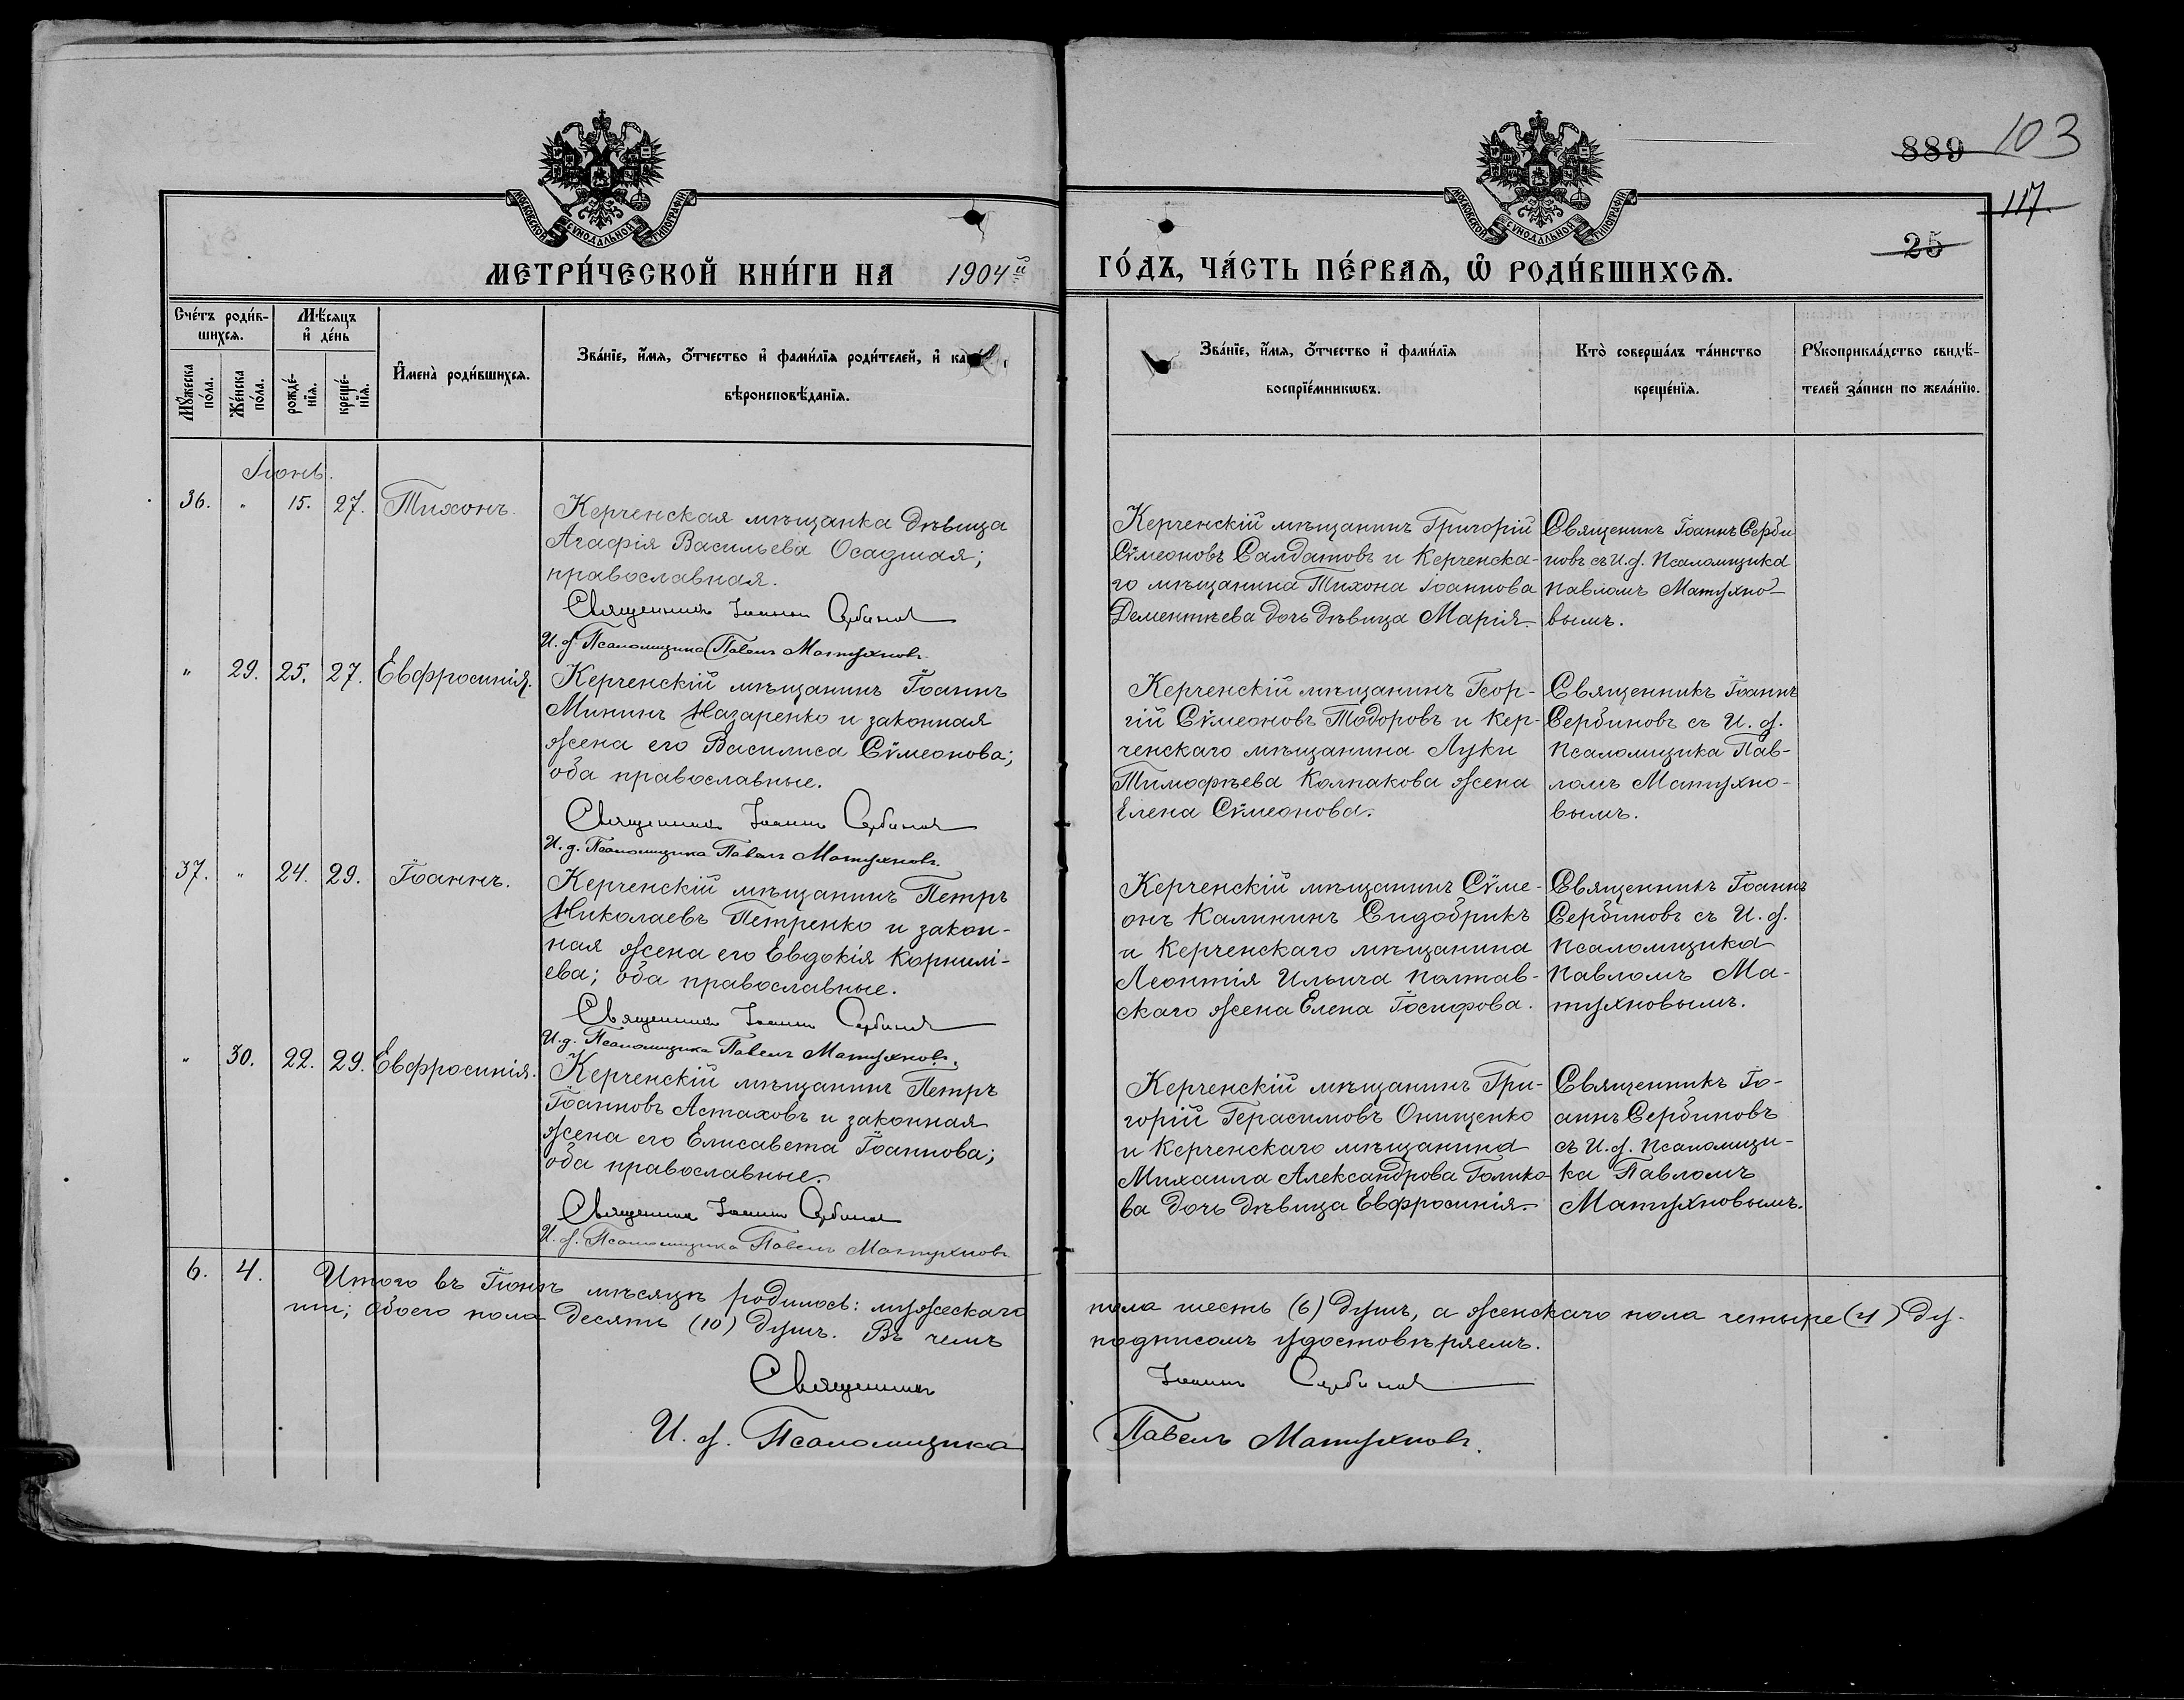 889 103
117.
25
МОСКОВСКОЙ СѴНОДАЛЬНОЙ ТИПОГРАФІИ
МОСКОВСКОЙ СѴНОДАЛЬНОЙ ТИПОГРАФІИ
МЕТРИ́ЧЕСКОЙ КНИ́ГИ НА 1904й
ГО́ДЪ, ЧА́СТЬ ПЕ́РВАѦ, Ѡ҆ РОДИ́ВШИХСѦ.
Сче́тъ роди́в-
шихсѧ.
Мꙋ́жеска по́ла.
Же́нска по́ла.
Мѣ́сѧцъ
и҆ де́нь
рожде́-
нїѧ.
креще́-
нїѧ.
И҆мена̀ роди́вшихсѧ.
Зва́нїе, и҆́мѧ, ѻ҆́тчество и҆ фами́лїѧ роди́телей, и҆
вѣроисповѣ́данїѧ.
Зва́нїе, и҆́мѧ, ѻ҆́тчество и҆ фами́лїѧ
воспрїе́мникѡвъ.
Кто̀ соверша́лъ та́инство
креще́нїѧ.
Рꙋкоприкла́дство свидѣ́-
телей за́писи по жела́нїю.
Іюнь.
36. " 15. 27. Тихонъ.
Керченская мѣщанка дѣвица
Агафія Васильева Осадшая;
православная.
Священникъ Іоаннъ Сербиновъ
И. д. Псаломщика Павелъ Матухновъ.
Керченскій мѣщанинъ Григорій
Сѵмеоновъ Салдатовъ и Керченска-
го мѣщанина Тихона Іоаннова
Дементьева дочь дѣвица Марія.
Священикъ Іоаннъ Серби
новъ съ И. д. Псаломщика
Павломъ Матухно-
вымъ.
" 29. 25. 27. Евфросинія.
Керченскій мѣщанинъ Іоаннъ
Мининъ Назаренко и законная
жена его Василиса Сѵмеонова;
оба православные.
Священникъ Іоаннъ Сербиновъ
И. д. Псаломщика Павелъ Матухновъ.
Керченскій мѣщанинъ Геор-
гій Сѵмеоновъ Тодоровъ и Кер-
ченскаго мѣщанина Луки
Тимофѣева Колпакова жена
Елена Сѵмеонова.
Священникъ Іоаннъ
Сербиновъ съ И. д.
Псаломщика Пав-
ломъ Матухно-
вымъ.
37. " 24. 29. Іоаннъ.
Керченскій мѣщанинъ Петръ
Николаевъ Петренко и закон-
ная жена его Евдокія Корнилі-
ева; оба православные.
Священникъ Іоаннъ Сербиновъ
И. д. Псаломщика Павелъ Матухновъ.
Керченскій мѣщанинъ Сѵме-
онъ Калининъ Сидобрикъ
и Керченскаго мѣщанина
Леонтія Ильича Полтав-
скаго жена Елена Іосифова.
Священникъ Іоаннъ
Сербиновъ съ И. д.
Псаломщика
Павломъ Ма-
тухновымъ.
" 30. 22. 29. Евфросинія.
Керченскій мѣщанинъ Петръ
Іоанновъ Астаховъ и законная
жена его Елисавета Іоаннова;
оба православные.
Священникъ Іоаннъ Сербиновъ
И. д. Псаломщика Павелъ Матухновъ
Керченскій мѣщанинъ Гри-
горій Герасимовъ Онищенко
и Керченскаго мѣщанина
Михаила Александрова Голико-
ва дочь дѣвица Евфросинія.
Священникъ Іо-
аннъ Сербиновъ
съ И. д. Псаломщи-
ка Павломъ
Матухновымъ.
6. 4. Итого въ Іюнѣ мѣсяцѣ родилось: мужескаго пола шесть (6) душъ, а женскаго пола четыре (4) ду-
ши; обоего пола десять (10) душъ. Въ чемъ подписомъ удостовѣряемъ.
Священникъ Іоаннъ Сербиновъ
И. д. Псаломщика Павелъ Матухновъ.